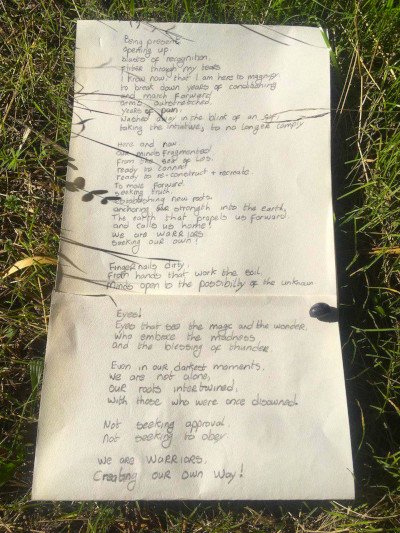 Being present,
opening up
blasts of recognition,
Filter through my tears
I know now that I am here to
to break down years of conditioning
and march forward,
arms outstretched.
years of pain,
washed away in the blink of an eye
taking the initiative, to no longer comply

Here and now
Our minds fragmented
From the sea of Los.
ready to connect
ready to re-construct + recreate
To move forward
Seeking truth
establishing new roots
anchoring our strength into the earth,
The earth that propels us forward.
and calls us home!
We are WARRIORS
Seeking our own!

Fingernails dirty
From hands that work the soil,
Minds open to the possibility of the unknown

Eyes!
Eyes that see the magic and the wonder,
Who embrace the madness
and the blessing of thunder

Even in our darkest moments,
We are not alone,
Our roots intertwined,
With those who were once disowned.

Not seeking approval,
Not seeking to obey

We are WARRIORS,
Creating our own Way!